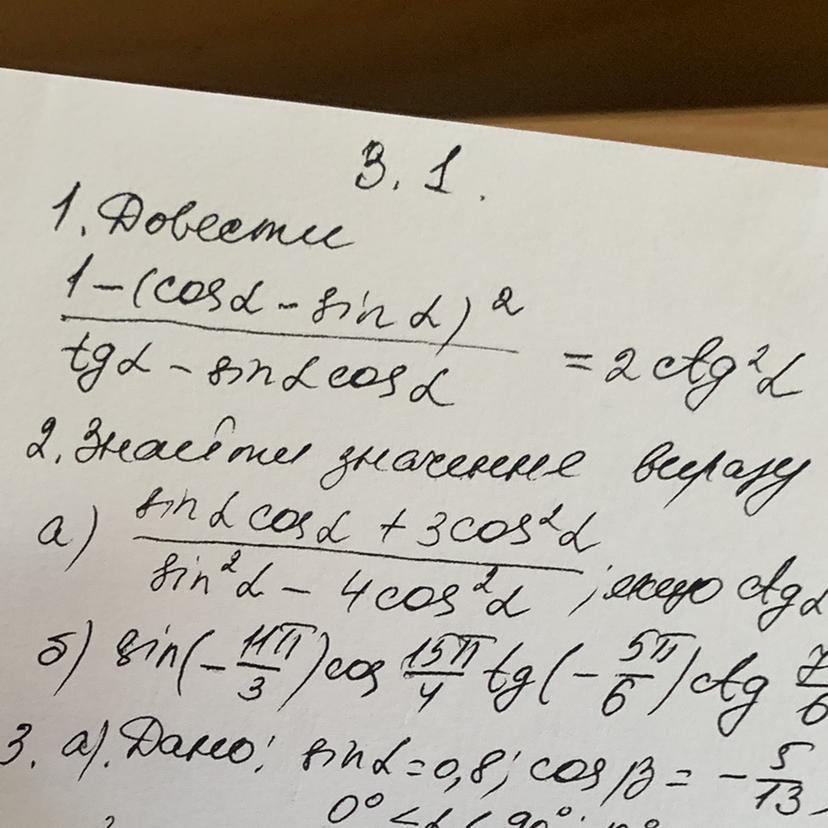 В. 1.
1. Довести
(1-(cosα - sinα)²)/(tgα - sinα cosα) = 2 ctg²α
2. Знайти значення виразу
а) (sinα cosα + 3cos²α)/(sin²α - 4cos²α) ; якщо ctgα
б) sin(-11π/3) cos 15π/4 tg(-5π/6) ctg 7/6
3. а). Дано: sinα = 0,8; cosβ = -5/13,
0° < α < 90°;